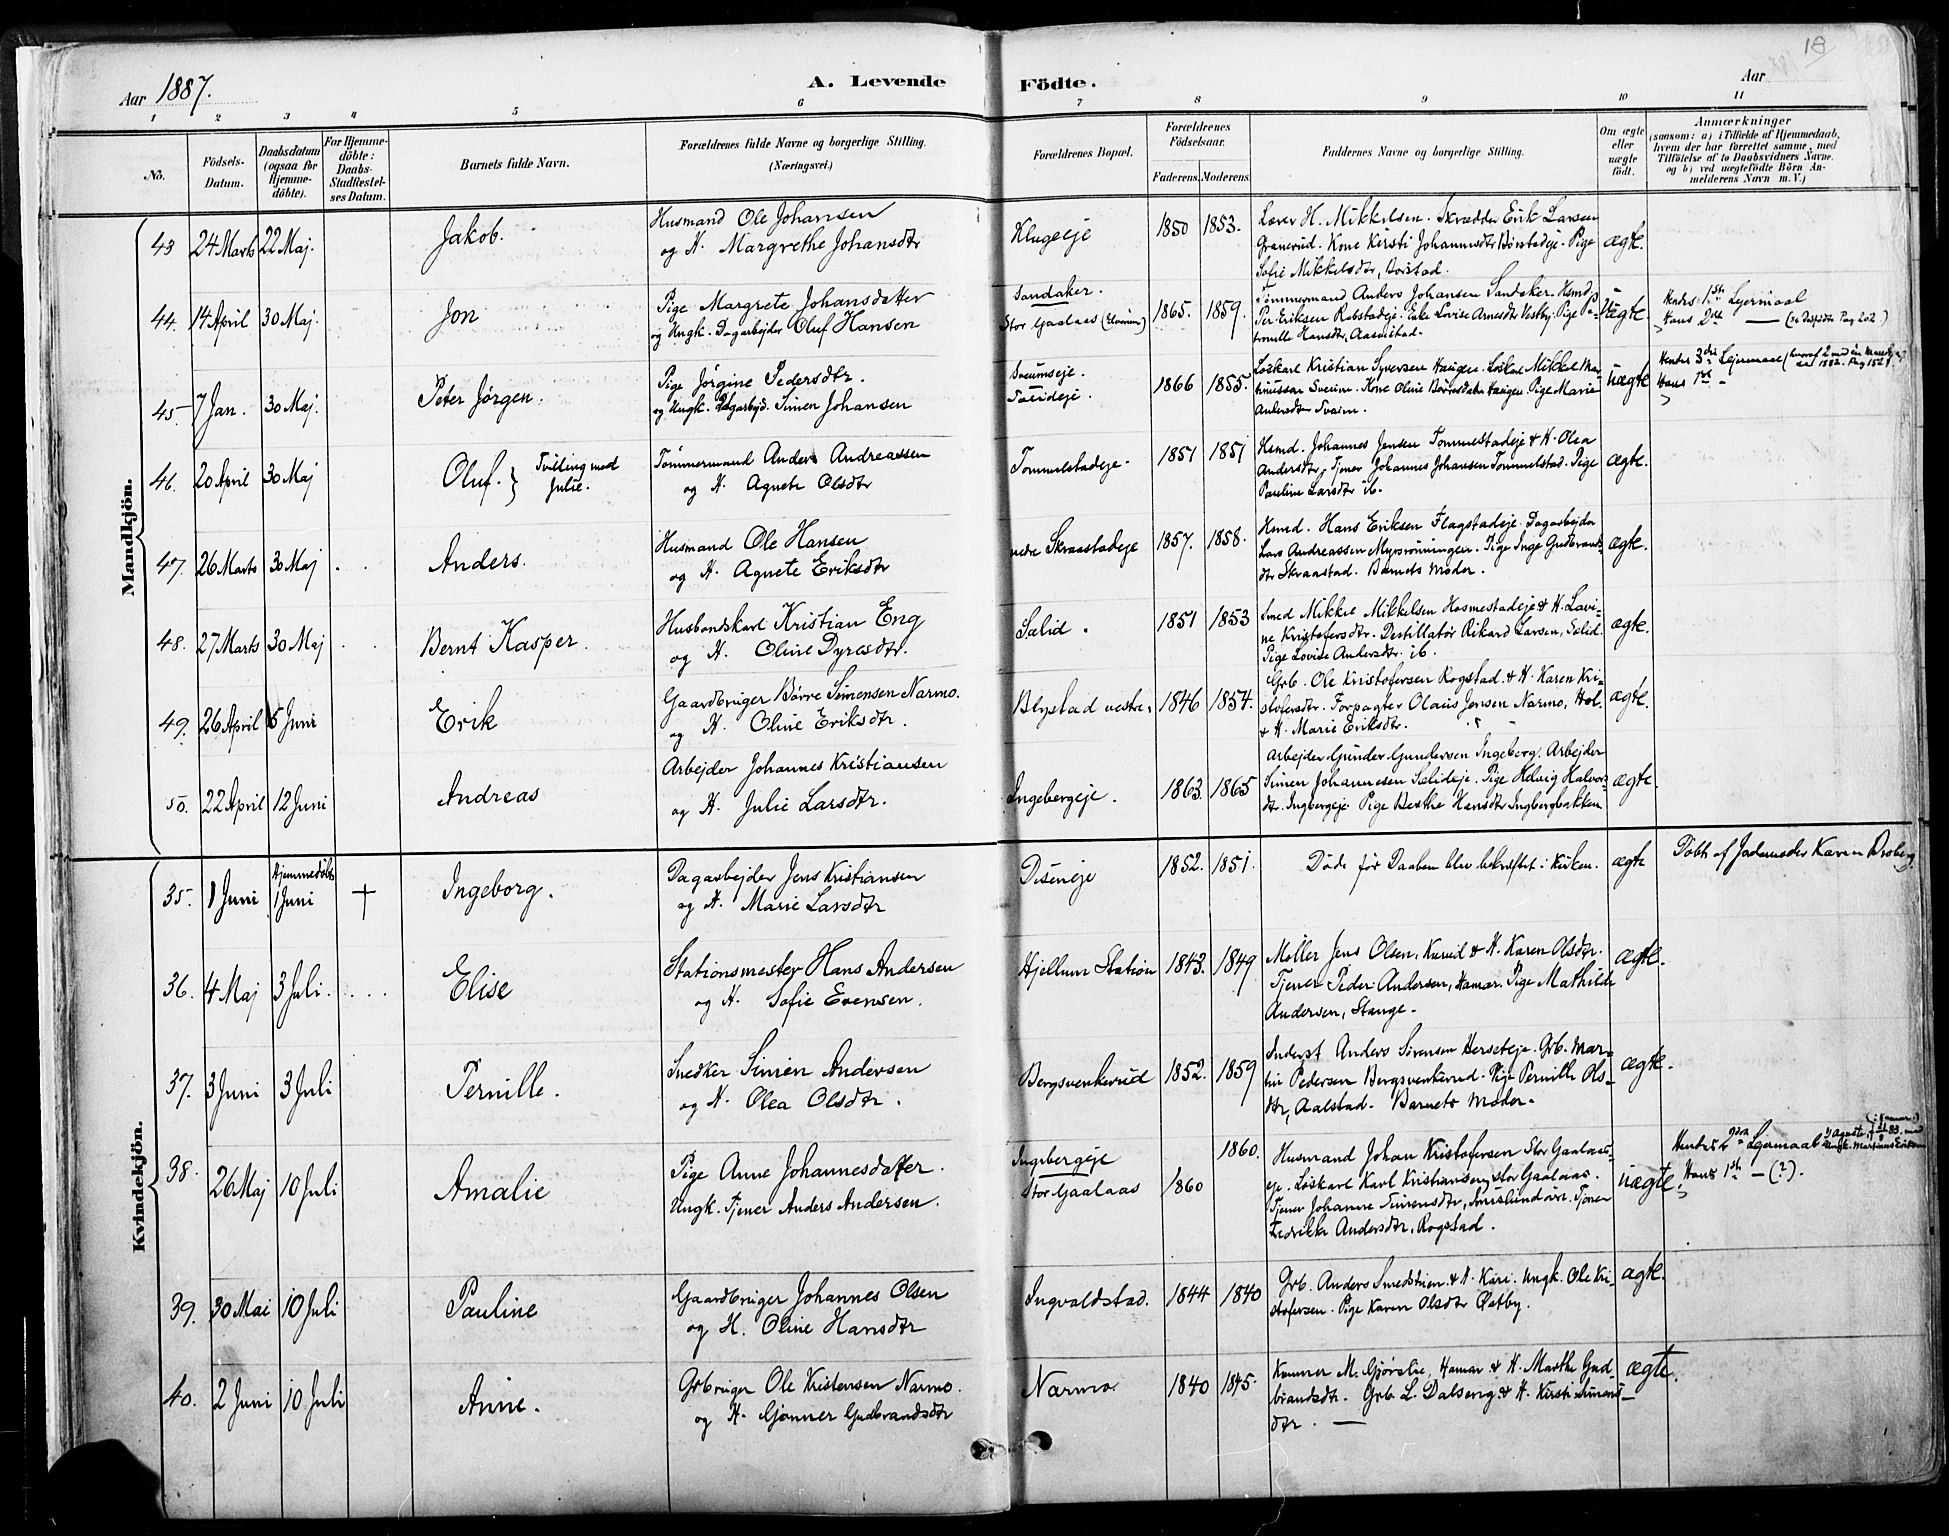 18
Aar 1887.
A. Levende
Födte.
Aar
1 2 3 4 5 6 7 8 9 10 11
No.
Födsels-
Datum.
Daabsdatum
(ogsaa for
Hjemme-
döbte).
For Hjemme-
döbte:
Daabs-
Stadfæstel-
ses Datum.
Barnets fulde Navn.
Forældrenes fulde Navne og borgerlige Stilling.
(Næringsvei.)
Forældrenes Bopæl.
Forældrenes
Födselsaar.
Faderens. Moderens.
Faddernes Navne og borgerlige Stilling.
Om ægte
eller
uægte
födt.
Anmærkninger
(saasom: a) i Tilfælde af Hjemmedaab,
hvem der har forrettet samme, med
Tilföielse af to Daabsvidners Navne.
og b) ved uægtefödte Börn An-
melderens Navn m. V.)
Mandkjön.
43 24 Marts 22 Maj. Jakob.
Husmand Ole Johansen
og H. Margrethe Johansdtr
Klugeeje 1850 1853.
Lærer H. Mikkelsen. Skrædder Erik Larsen
Granerud. Kone Kersti Johannesdtr Börstadeje. Pige
Sofie Mikkelsdtr, Borstad.
ægte.
44. 14 April 30 Maj. Jon
Pige Margrete Johansdatter
og Ungk. Dagarbejder Oluf Hansen
Sandaker.
Stor Gaalaas 1865. 1859.
Tömmermand Anders Johansen Sandaker. Hsmd.
Per Eriksen Robstadeje. Enke Lovise Arnesdtr Vestby. Pige Pe-
tronelle Hansdtr, Aasmestad.
Uægte.
Hendes 1ste Lejermaal
Hans 2det —
45. 7 Jan. 30 Maj. Peter Jörgen.
Pige Jörgine Pedersdtr.
og Ungk. Dagarbejd. Simen Johansen
Sveumseje.
1866 1855.
Löskarl Kristian Syversen Haugen. Löskarl Mikkel Mar-
Sveum. Kone Oline Haugen. Pige Marie
Andersdtr
uægte
Hendes 3die Lejermaal
Hans 1ste -
46. 20 April 30 Maj Oluf. } Tvilling med
Julie.
Tömmermand Anders Andreassen
og H. Agnete Olsdtr
Tommelstadeje. 1851 1851
Hsmd. Johannes Jensen Tommelstadeje & H. Olea
Andersdtr, Tjener Johannes Johansen Tommelstad. Pige
Pauline Larsdtr ib.
ægte.
47. 26 Marts 30 Maj Anders.
Husmand Ole Hansen
og H. Agnete Eriksdtr
nedre Skraastadeje 1857. 1858.
Hsmd. Hans Eriksen Flagstadeje. Dagarbejder
Lars Andreassen Myrsröningen. Pige Inge Gudbrands-
dtr Skraastad. Barnets Moder.
ægte.
48. 27 Marts 30 Maj Bernt Kasper.
Husbondskarl Kristian Eng
og H. Oline Dyresdtr.
Sælid. 1851 1853
Smed Mikkel Mikkelsen Hosmestadeje & H. Lovi-
ne Kristofersdtr. Destillatör Rikard Larsen, Sælid.
Pige Lovise Andersdtr. ib.
ægte.
49. 26 April 5 Juni Erik
Gaardbruger Börre Simensen Narmo.
og H. Oline Eriksdtr.
Blystad vestre, 1846 1854.
Grb. Ole Kristofersen Rogstad. & H. Karen Kri-
stofersdtr. Forpagter Olaus Jensen Narmo, Hol.
& H. Marie Eriksdtr.
ægte.
50. 22 April 12 Juni Andreas
Arbejder Johannes Kristiansen
og H. Julie Larsdtr.
Ingebergeje. 1863. 1865
Arbejder Gunder Gundersen Ingeberg, Arbejder
Simen Johannesen Sælideje. Pige Helvig Halvors-
dtr. Ingbergeje. Pige Berthe Hansdtr Ingbergbakken
ægte.
Kvindekjön.
35. 1 Juni Hjemmedöbt
1 Juni † Ingeborg.
Dagarbejder Jens Kristiansen
og H. Marie Larsdtr
Diseneje 1852. 1851.
Döde för Daaben blev bekræftet i Kirken.
ægte
Döbt af Jodemoder Karen Broberg.
36. 4 Maj 3 Juli. Elise
Stationsmester Hans Andersen
og H. Sofie Evensen.
Hjellum Station 1843. 1849
Möller Jens Olsen, Kurud & H. Karen Olsdtr.
Tjener Peder Andersen, Hamar. Pige Mathilde
Andersen, Stange.
ægte.
37. 3 Juni 3 Juli Pernille.
Snedker Simen Andersen
og H. Olea Olsdtr.
Bergsvenkerud 1852. 1859
Inderst Anders Sörensen Herseteje. Grb. Mar-
tin Pedersen Bergsvenkerud. Pige Pernille Ols-
dtr, Aalstad. Barnets Moder.
ægte.
38. 26 Maj 10 Juli Amalie
Pige Anne Johannesdatter.
Ungk. Tjener Anders Andersen.
Ingebergeje
Stor Gaalaas 1860 1860.
Husmand Johan Kristofersen Stor Gaalaas-
eje. Löskarl Karl Kristiansen, Stor Gaalaas.
Tjener Johanne Simensdtr, Imislund övre. Tjener
Fredrikke Andersdtr, Rogstad.
uægte.
Hendes 2det Lejermaal
Hans 1ste — (?).
39. 30 Mai 10 Juli Pauline
Gaardbruger Johannes Olsen
og H. Oline Hansdtr
Ingvaldstad. 1844 1840
Grb. Anders Smedstuen. & H. Kari. Ungk. Ole Kri-
stofersen. Pige Karen Olsdtr Östby.
ægte.
40. 2 Juni 10 Juli Anne.
Grbruger Ole Kristensen Narmo.
og H. Gjönner Gudbrandsdtr
Narmo. 1840 1845.
M. Gjörslie, Hamar & H. Marthe Gud-
brandsdtr. Grb. L. Dalseng & H. Kirsti Simens-
dtr. —
ægte.